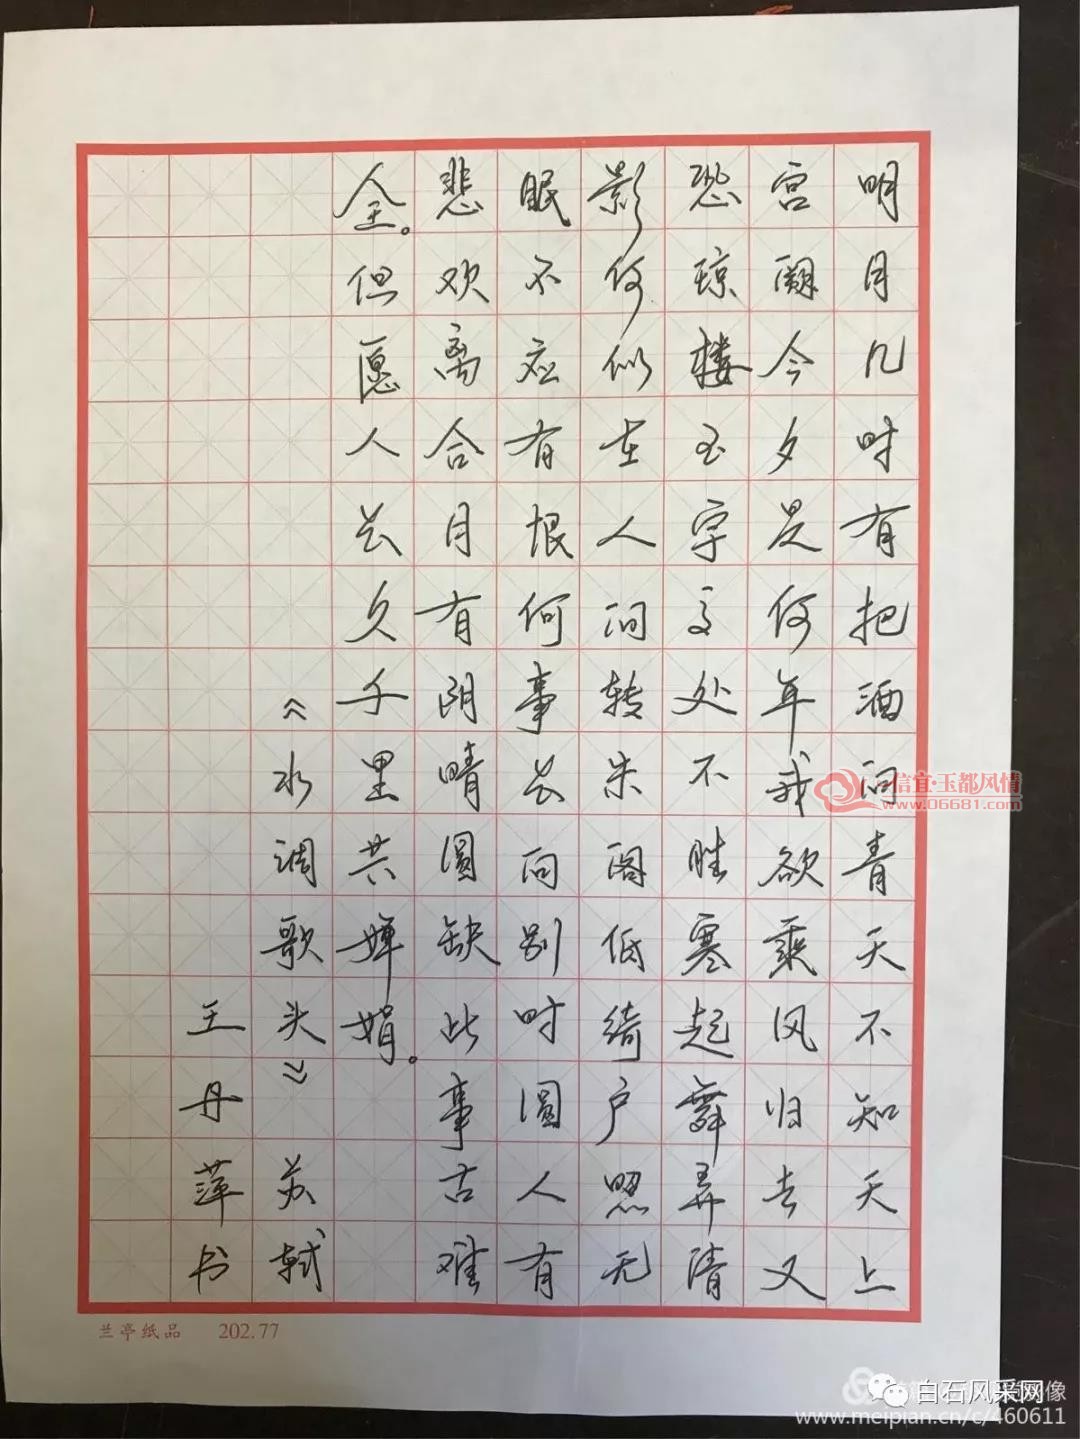 明月几时有把酒问青天不知天上
宫阙今夕是何年我欲乘风归去又
恐琼楼玉宇高处不胜寒起舞弄清
影何似在人间转朱阁低绮户照无
眠不应有恨何事长向别时圆人有
悲欢离合月有阴晴圆缺此事古难
全。但愿人长久千里共婵娟。
《水调歌头》苏轼
王丹萍书
兰亭纸品 202.77
信宜·玉都风情
www.06681.com
白石风采网
www.meipian.cn/c/460611